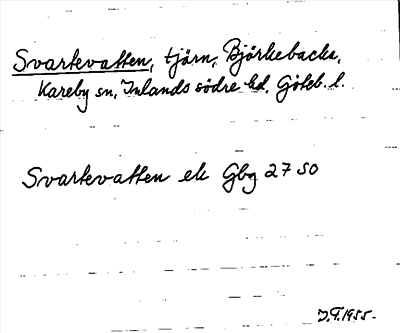 Svartevatten, tjärn, Björkebacka,
Kareby sn, Inlands södre hd, Göteb. l.
Svartevatten ek Gbg 27 SO
J.F. 1955.